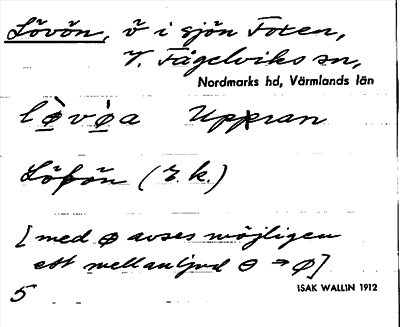 Lövön, ö i sjön Foxen,
V. Fågelviks sn,
Nordmarks hd, Värmlands län
l ø̀ v ø̀ a Uppran
Löfön (r.k.)
[med ø avses möjligen
ett mellanljud ɵ → ø]
5 ISAK WALLIN 1912